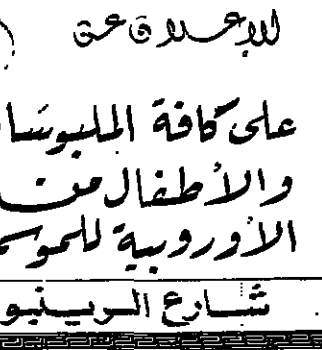 للإعلان عن
على كافة الملبوسا
والأطفال من
الأوروبية للموسم
شارع الريسنيو